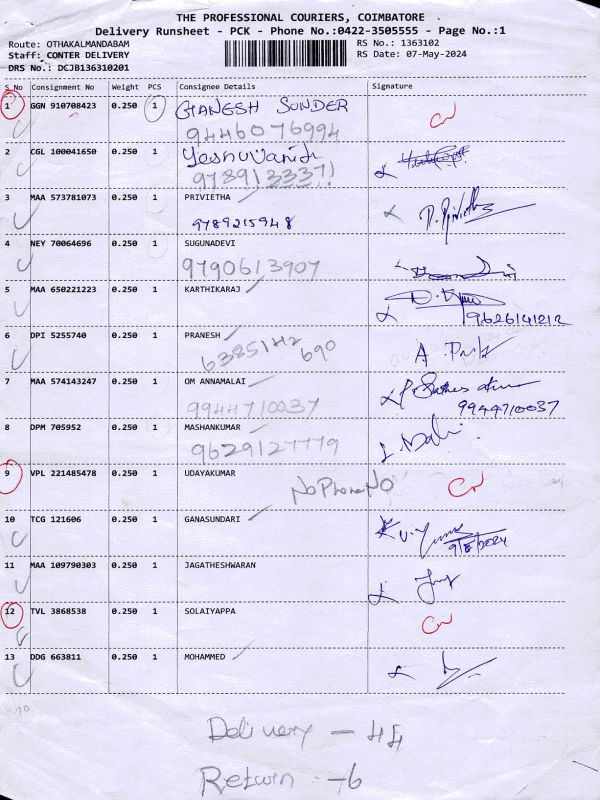 THE PROFESSIONAL COURIERS, COIMBATORE
Delivery Runsheet - PCK - Phone No.:0422-3505555 - Page No.:1
Route: OTHAKALMANDABAM RS No.: 1363102
Staff: CONTER DELIVERY RS Date: 07-May-2024
DRS No.: DCJB136310201
S_No Consignment No Weight PCS Consignee Details Signature
1 GGN 910708423 0.250 1 GANESH SUNDER CN
9446076994
2 CGL 100041650 0.250 1
9789133371
3 MAA 573781073 0.250 1 PRIVIETHA
9789215948
4 NEY 70064696 0.250 1 SUGUNADEVI
9790613907
5 MAA 650221223 0.250 1 KARTHIKARAJ
9626141212
6 DPI 5255740 0.250 1 PRANESH
6385142690
7 MAA 574143247 0.250 1 OM ANNAMALAI
9944710037 9944710037
8 DPM 705952 0.250 1 MASHANKUMAR
9629127779
9 VPL 221485478 0.250 1 UDAYAKUMAR
No Phone NO CN
10 TCG 121606 0.250 1 GANASUNDARI
9/8/2024
11 MAA 109790303 0.250 1 JAGATHESHWARAN
12 TVL 3868538 0.250 1 SOLAIYAPPA CN
13 DDG 663811 0.250 1 MOHAMMED
Delivery - 44
Return - 6